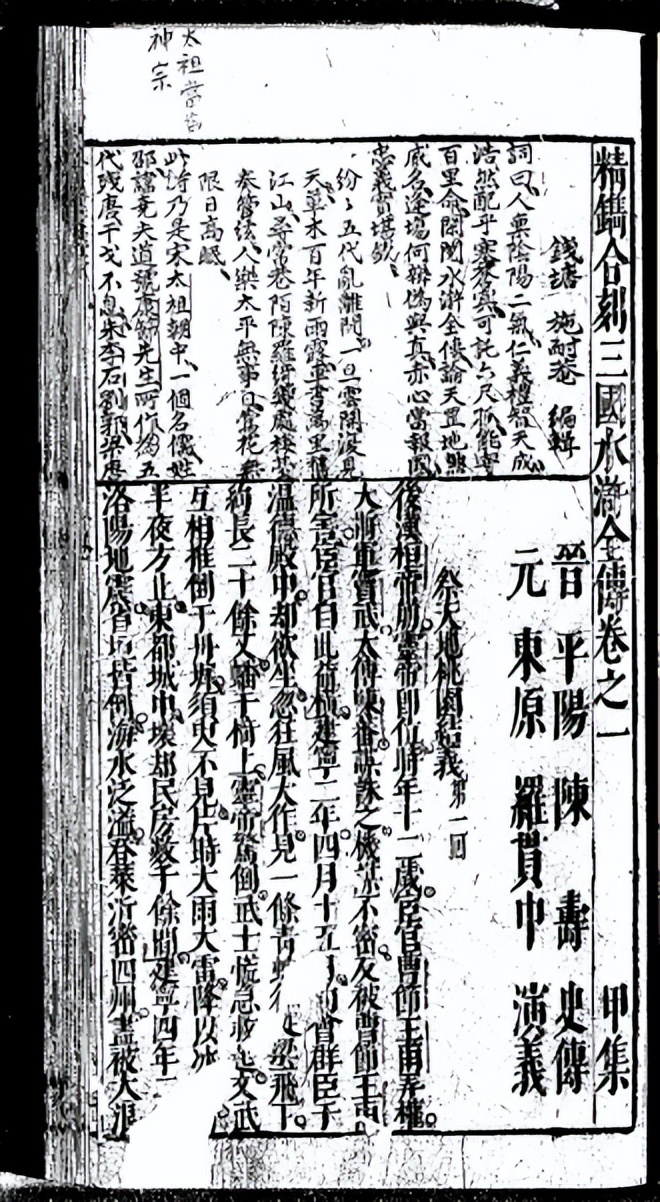 太祖當
神宗
精鐫合刻三國水滸全傳卷之一 甲集
錢塘 施耐菴 編輯
詞曰人稟陰陽二氣仁義禮智天成
浩然配乎塞蒼冥可託六尺孤能寄
百里命閑閱水滸全傳論天罡地煞
威名逢場何辨偽與真赤心當報國
忠義實堪欽
紛〻五代亂離間一旦雲開復見
天草木百年新雨露車書萬里舊
江山尋常巷陌陳羅綺幾處樓臺
奏管絃人樂太平無事日鶯花無
限日高眠
此詩乃是宋太祖朝中一個名儒姓
邵諱堯夫道號康節先生所作為五
代殘唐干戈不息朱李石劉郭梁唐
晉 平陽 陳 壽 史傳
元 東原 羅貫中 演義
祭天地桃園結義 第一回
後漢桓帝崩靈帝即位時年十二歲宦官曹節王甫弄權
大將軍竇武太傅陳蕃謀誅之機謀不密反被曹節王甫
所害宦官自此滋橫建寧二年四月十五日會群臣于
溫德殿中却欲坐忽狂風大作見一條青 從梁飛下
約長二十餘丈蟠于椅上靈帝驚倒武士慌急救 文武
互相推倒于丹墀須臾不見片時大雨大雷降以冰
半夜方止東都城中壞却民房數千餘間建寧四年二
洛陽地震省垣皆倒海水泛溢登萊沂密四州盡被大浪